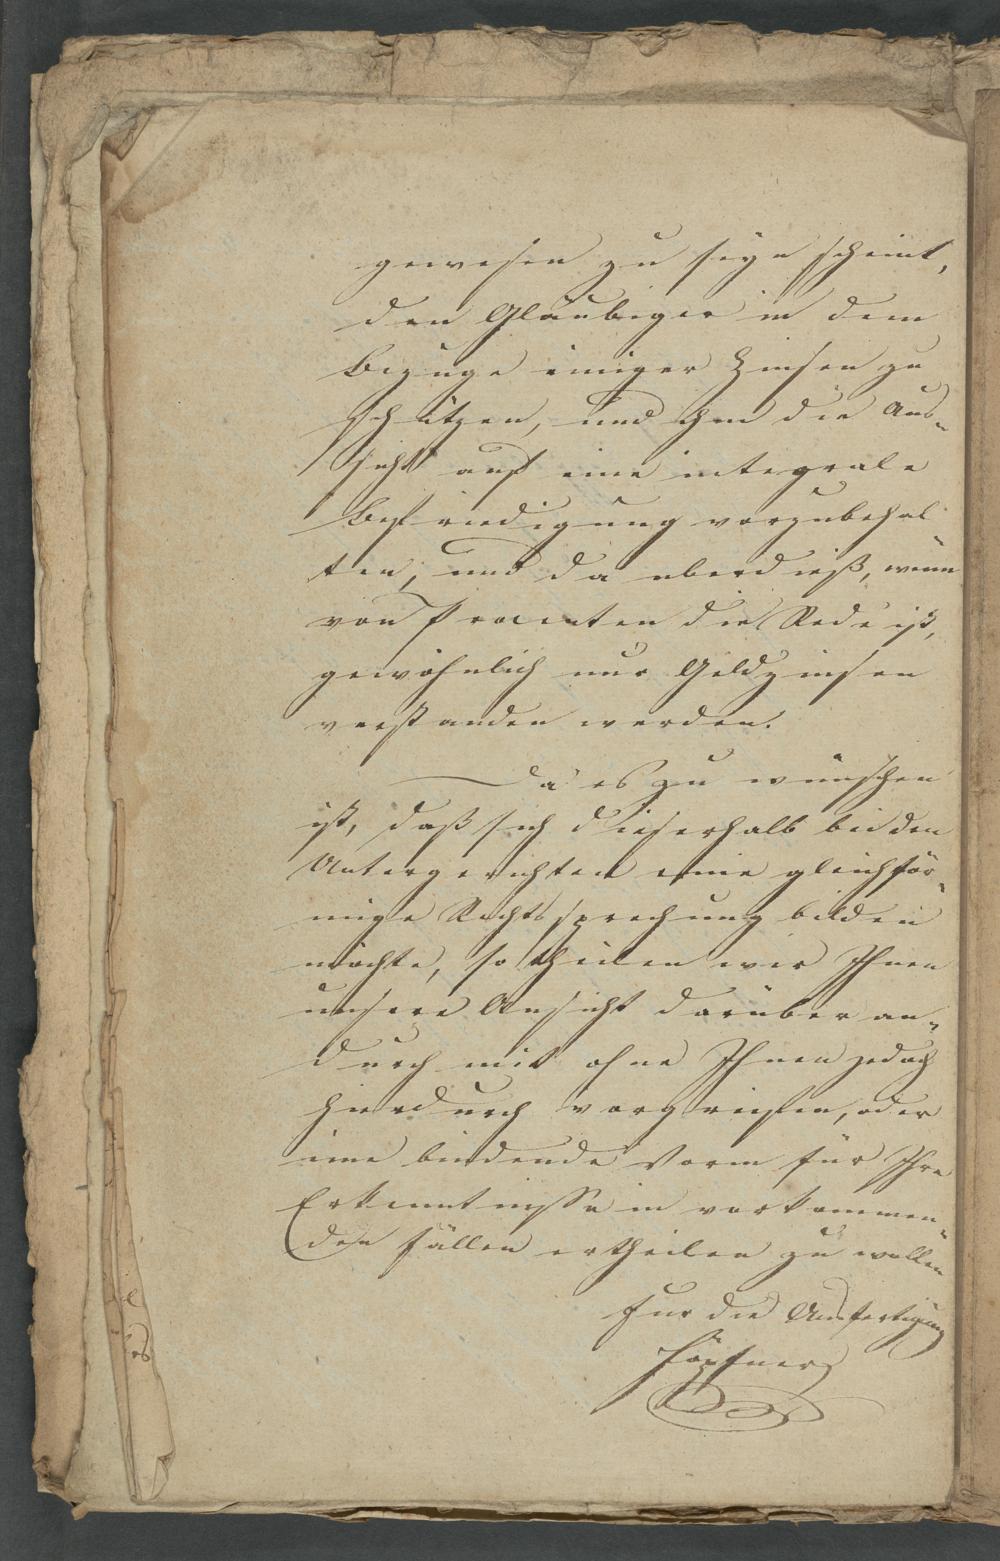 gewesen zu seyn scheint,
den Gläubiger in dem
Bezuge einiger Zinsen zu
schützen, und ihm die Aus-
sicht auf eine integrale
Befriedigung vorzubehal
ten, und da uberdieß, wenn
von Procenten die Rede ist,
gewöhnlich nur Geldzinsen
verstanden werden.
Da es zu wünschen
ist, daß sich dieserhalb bei den
Untergerichten eine gleichför-
mige Rechtssprechung bilden
möchte, so theilen wir Ihnen
unsere Ansicht darüber an-
durch mit ohne Ihnen jedoch
hierdurch vorgreifen, oder
eine bindende Norm für Ihre
Erkenntnisse in vorkommen-
den Fällen ertheilen zu wollen
Fur die Ausfertigung
Höpfner